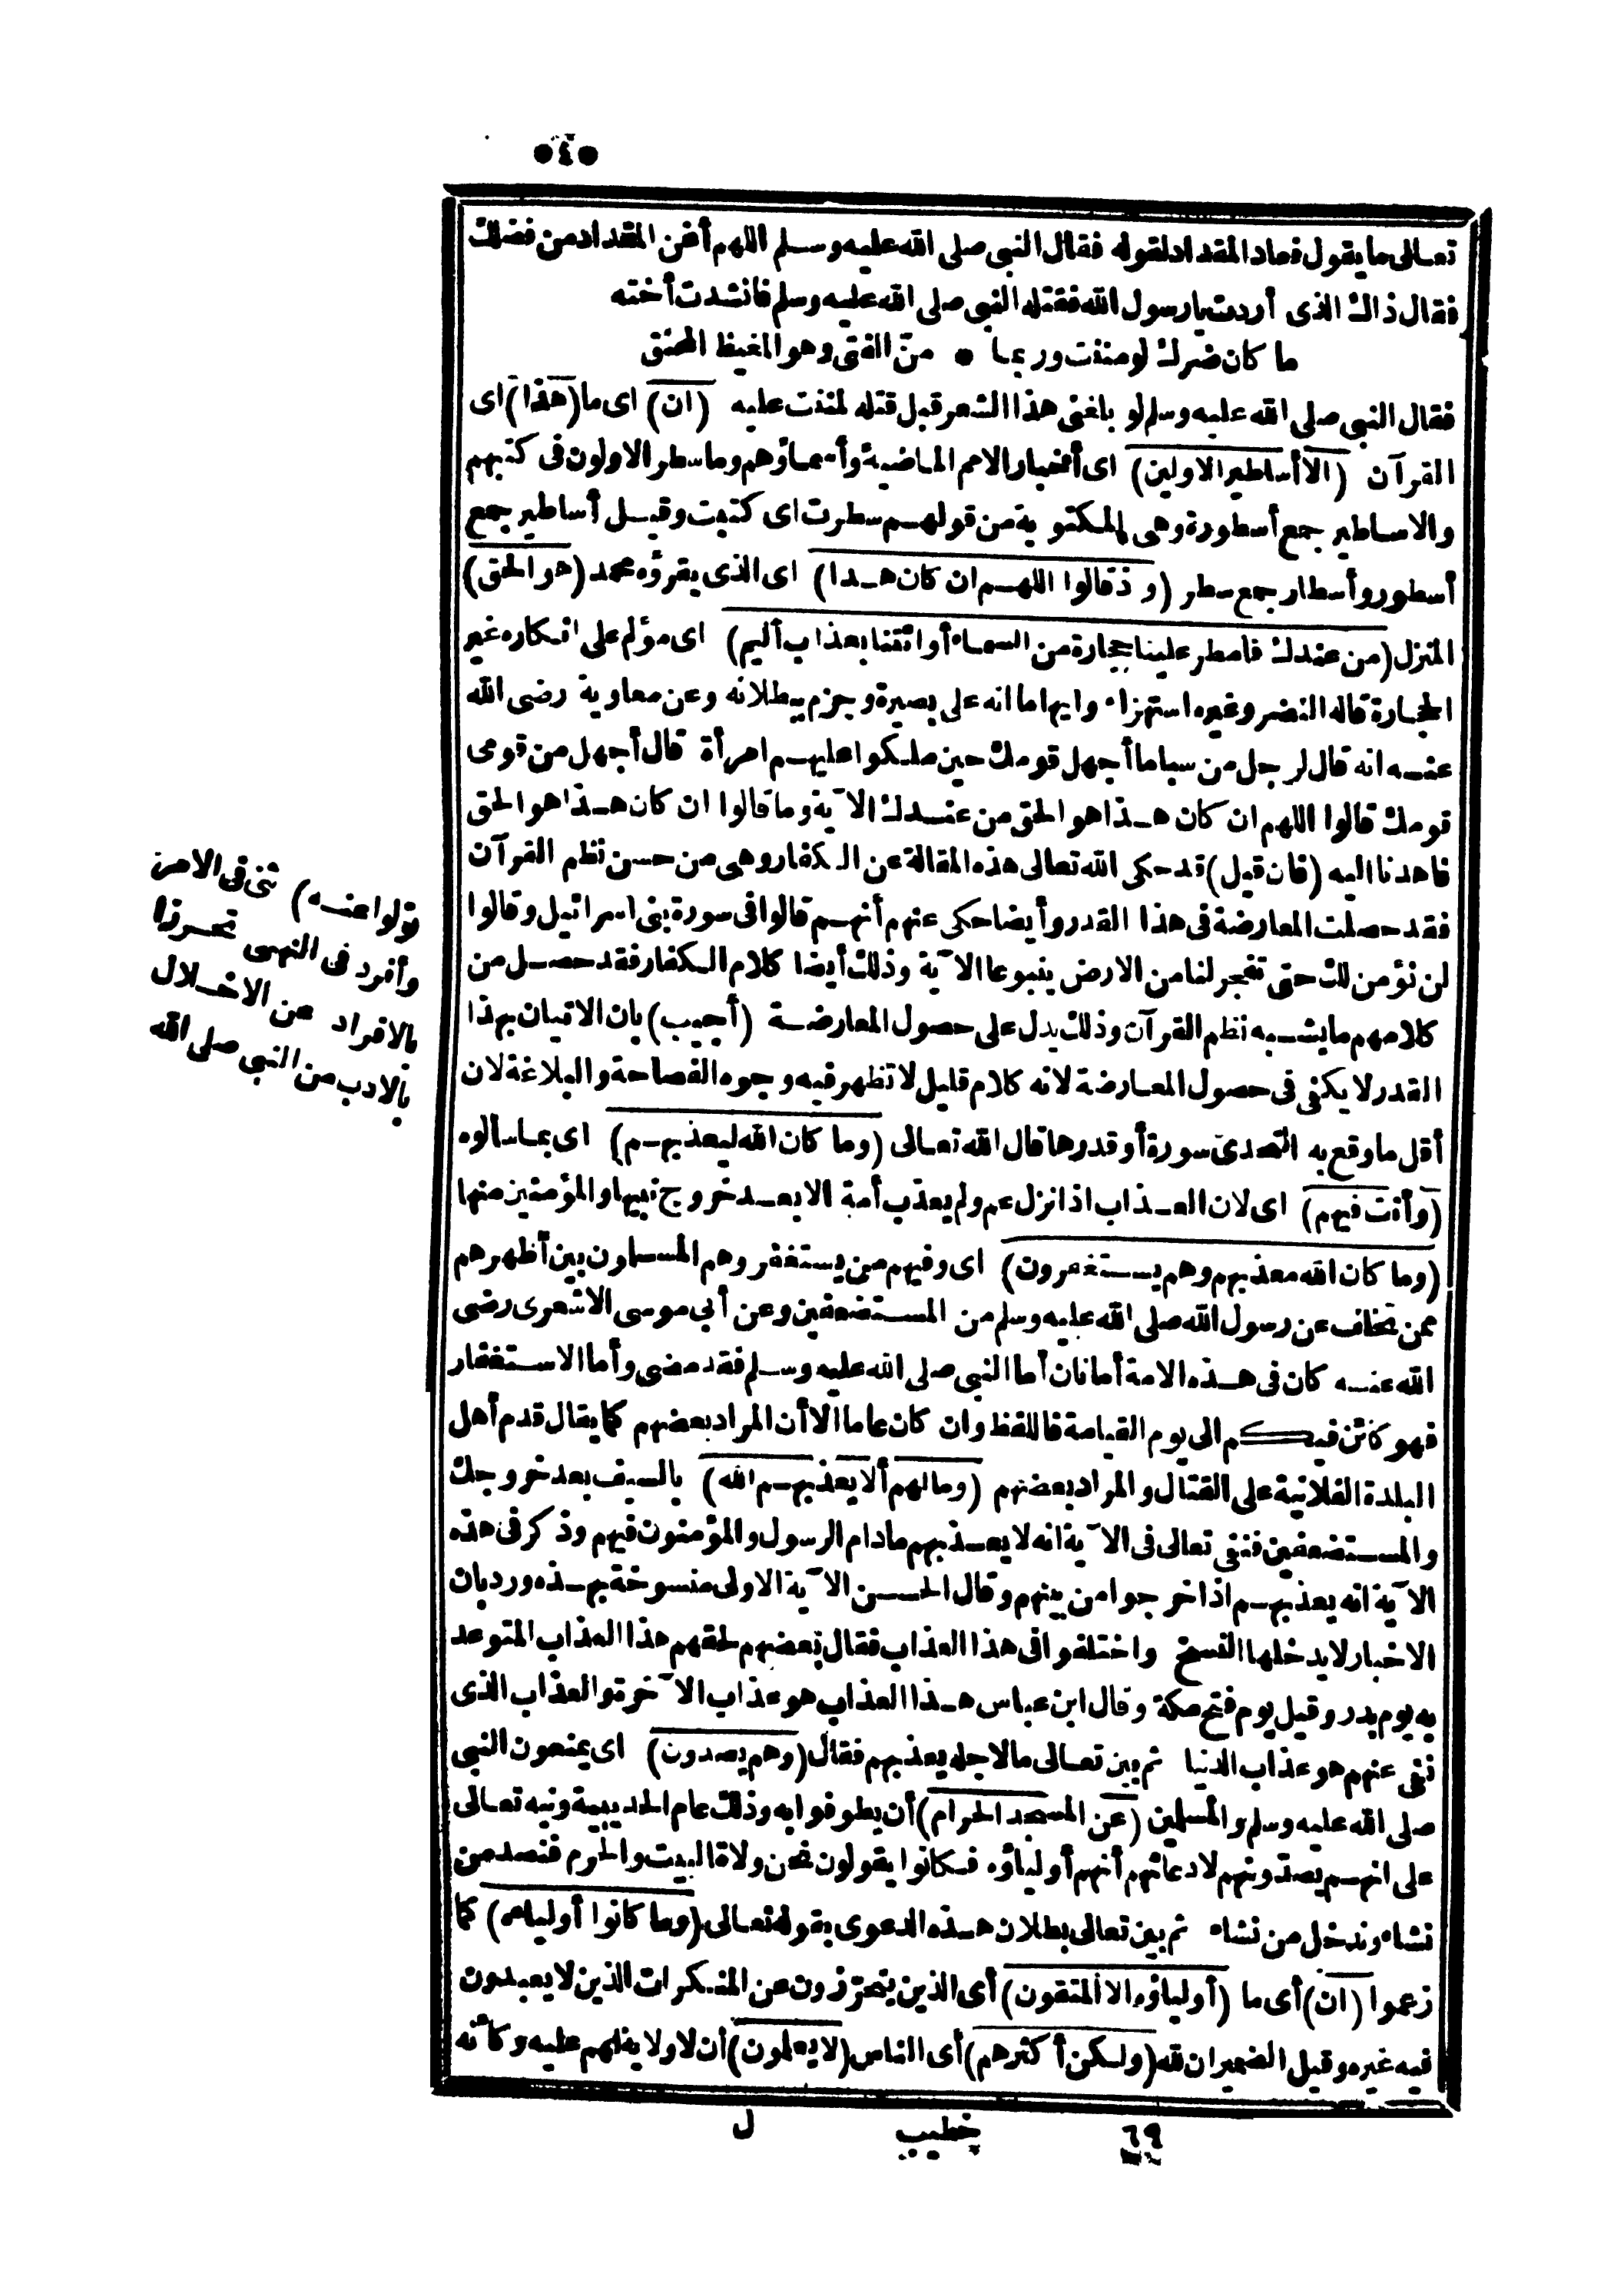 ٤
تعالى ما يقول فعاد المقداد لقوله فقال النبى صلى الله عليه وسلم اللهم أغن المقداد من فضلك
فقال ذاك الذى أردت يا رسول الله فقتله النبى صلى الله عليه وسلم فانشدت أخته
ما كان ضرك لو مننت وربما • منّ الفتى وهو المغيظ المحنق
فقال النبى صلى الله عليه وسلم لو بلغنى هذا الشعر قبل قتله لمننت عليه (ان) اى ما (هذا) اى
القرآن (الا أساطير الاولين) اى أخبار الامم الماضية وأسماؤهم وما سطر الاولون فى كتبهم
والاساطير جمع أسطورة وهى المكتوبة من قولهم سطرت اى كتبت وقيل أساطير جمع
أسطور وأسطار جمع سطر (و ذ قالوا اللهم ان كان هذا) اى الذى يقرؤه محمد (هو الحق)
المنزل (من عندك فامطر علينا حجارة من السماء أو ائتنا بعذاب أليم) اى مؤلم على انكاره غير
الحجارة قاله النضر وغيره استهزاء وايهاما انه على بصيرة وجزم ببطلانه وعن معاوية رضى الله
عنه انه قال لرجل من سبا ما أجهل قومك حين ملكوا عليهم امرأة قال أجهل من قومى
قومك قالوا اللهم ان كان هذا هو الحق من عندك الآية وما قالوا ان كان هذا هو الحق
فاهدنا اليه (فان قيل) قد حكى الله تعالى هذه المقالة عن الكفار وهى من حسن نظم القرآن
فقد حصلت المعارضة فى هذا القدر وأيضا حكى عنهم أنهم قالوا فى سورة بنى اسرائيل وقالوا
لن نؤمن لك حتى تفجر لنا من الارض ينبوعا الآية وذلك أيضا كلام الكفار فقد حصل من
كلامهم ما يشبه نظم القرآن وذلك يدل على حصول المعارضة (أجيب) بان الاتيان بهذا
القدر لا يكفى فى حصول المعارضة لانه كلام قليل لا تظهر فيه وجوه الفصاحة والبلاغة لان
أقل ما وقع به التحدى سورة أو قدرها قال الله تعالى (وما كان الله ليعذبهم) اى بما سألوه
(وأنت فيهم) اى لان العذاب اذا نزل عم ولم يعذب أمة الا بعد خروج نبيها والمؤمنين منها
(وما كان الله معذبهم وهم يستغفرون) اى وفيهم من يستغفر وهم المسلمون بين أظهرهم
ممن تخلف عن رسول الله صلى الله عليه وسلم من المستضعفين وعن أبى موسى الاشعرى رضى
الله عنه كان فى هذه الامة أمانان أما النبى صلى الله عليه وسلم فقد مضى وأما الاستغفار
فهو كائن فيكم الى يوم القيامة فاللفظ وان كان عاما الا أن المراد بعضهم كما يقال قدم أهل
البلدة الفلانية على القتال والمراد بعضهم (وما لهم ألا يعذبهم الله) بالسيف بعد خروجك
والمستضعفين فنفى تعالى فى الآية انه لا يعذبهم مادام الرسول والمؤمنون فيهم وذكر فى هذه
الآية انه يعذبهم اذا خرجوا من بينهم وقال الحسن الآية الاولى منسوخة بهذه ورد بان
الاخبار لا يدخلها النسخ واختلفوا فى هذا العذاب فقال بعضهم لحقهم هذا العذاب المتوعد
به يوم بدر وقيل يوم فتح مكة وقال ابن عباس هذا العذاب هو عذاب الآخرة والعذاب الذى
نفى عنهم هو عذاب الدنيا ثم بين تعالى ما لاجله يعذبهم فقال (وهم يصدون) اى يمنعون النبى
صلى الله عليه وسلم والمسلمين (عن المسجد الحرام) أن يطوفوا به وذلك عام الحديبية ونبه تعالى
على انهم يصدّونهم لادعائهم أنهم أولياؤه فكانوا يقولون نحن ولاة البيت والحرم فنصد من
نشاء وندخل من نشاء ثم بين تعالى بطلان هذه الدعوى بقوله تعالى (وما كانوا أولياءه) كما
زعموا (ان) أى ما (أولياؤه الا المتقون) أى الذين يتحرّزون عن المنكرات الذين لا يعبدون
فيه غيره وقيل الضميران لله (ولكن أكثرهم) أى الناس (لا يعلمون) أن لا ولاية لهم عليه وكأنه
تولوا عنه) ثنى فى الامر
وأفرد فى النهى تحرزا
بالافراد عن الاخلال
بالادب من النبى صلى الله
٦٩ خطيب ل